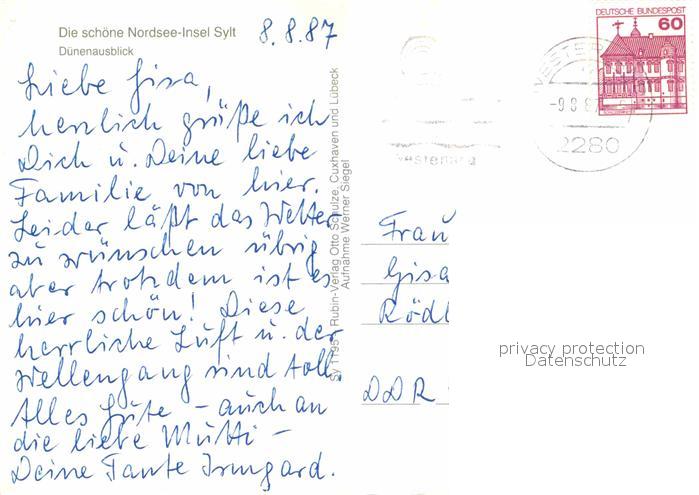 Die schöne Nordsee-Insel Sylt
Dünenausblick
8.8.87
Liebe Gisa,
herzlich grüße ich
Dich u. Deine liebe
Familie von hier.
Leider läßt das Wetter
zu wünschen übrig
aber trotzdem ist es
hier schön! Diese
herrliche Luft u. der
Wellengang sind toll.
Alles Gute – auch an
die liebe Mutti –
Deine Tante Irmgard.
Rubin-Verlag Otto Schulze, Cuxhaven und Lübeck
Aufnahme Werner Siegel
DEUTSCHE BUNDESPOST
60
2280
Frau
Gisa
Rödl
DDR
privacy protection
Datenschutz